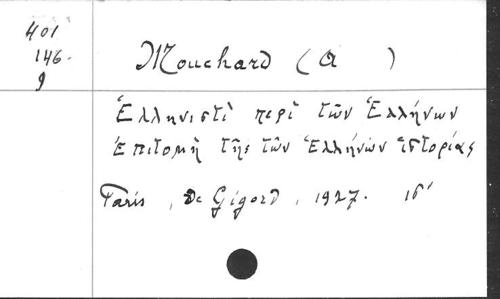 401
146.
9
Mouchard (A )
Ἑλληνιστὶ περὶ τῶν Ἑλλήνων
ἐπιτομὴ τῆς τῶν Ἑλλήνων ἱστορίας
Paris, De Gigord, 1927. 16°